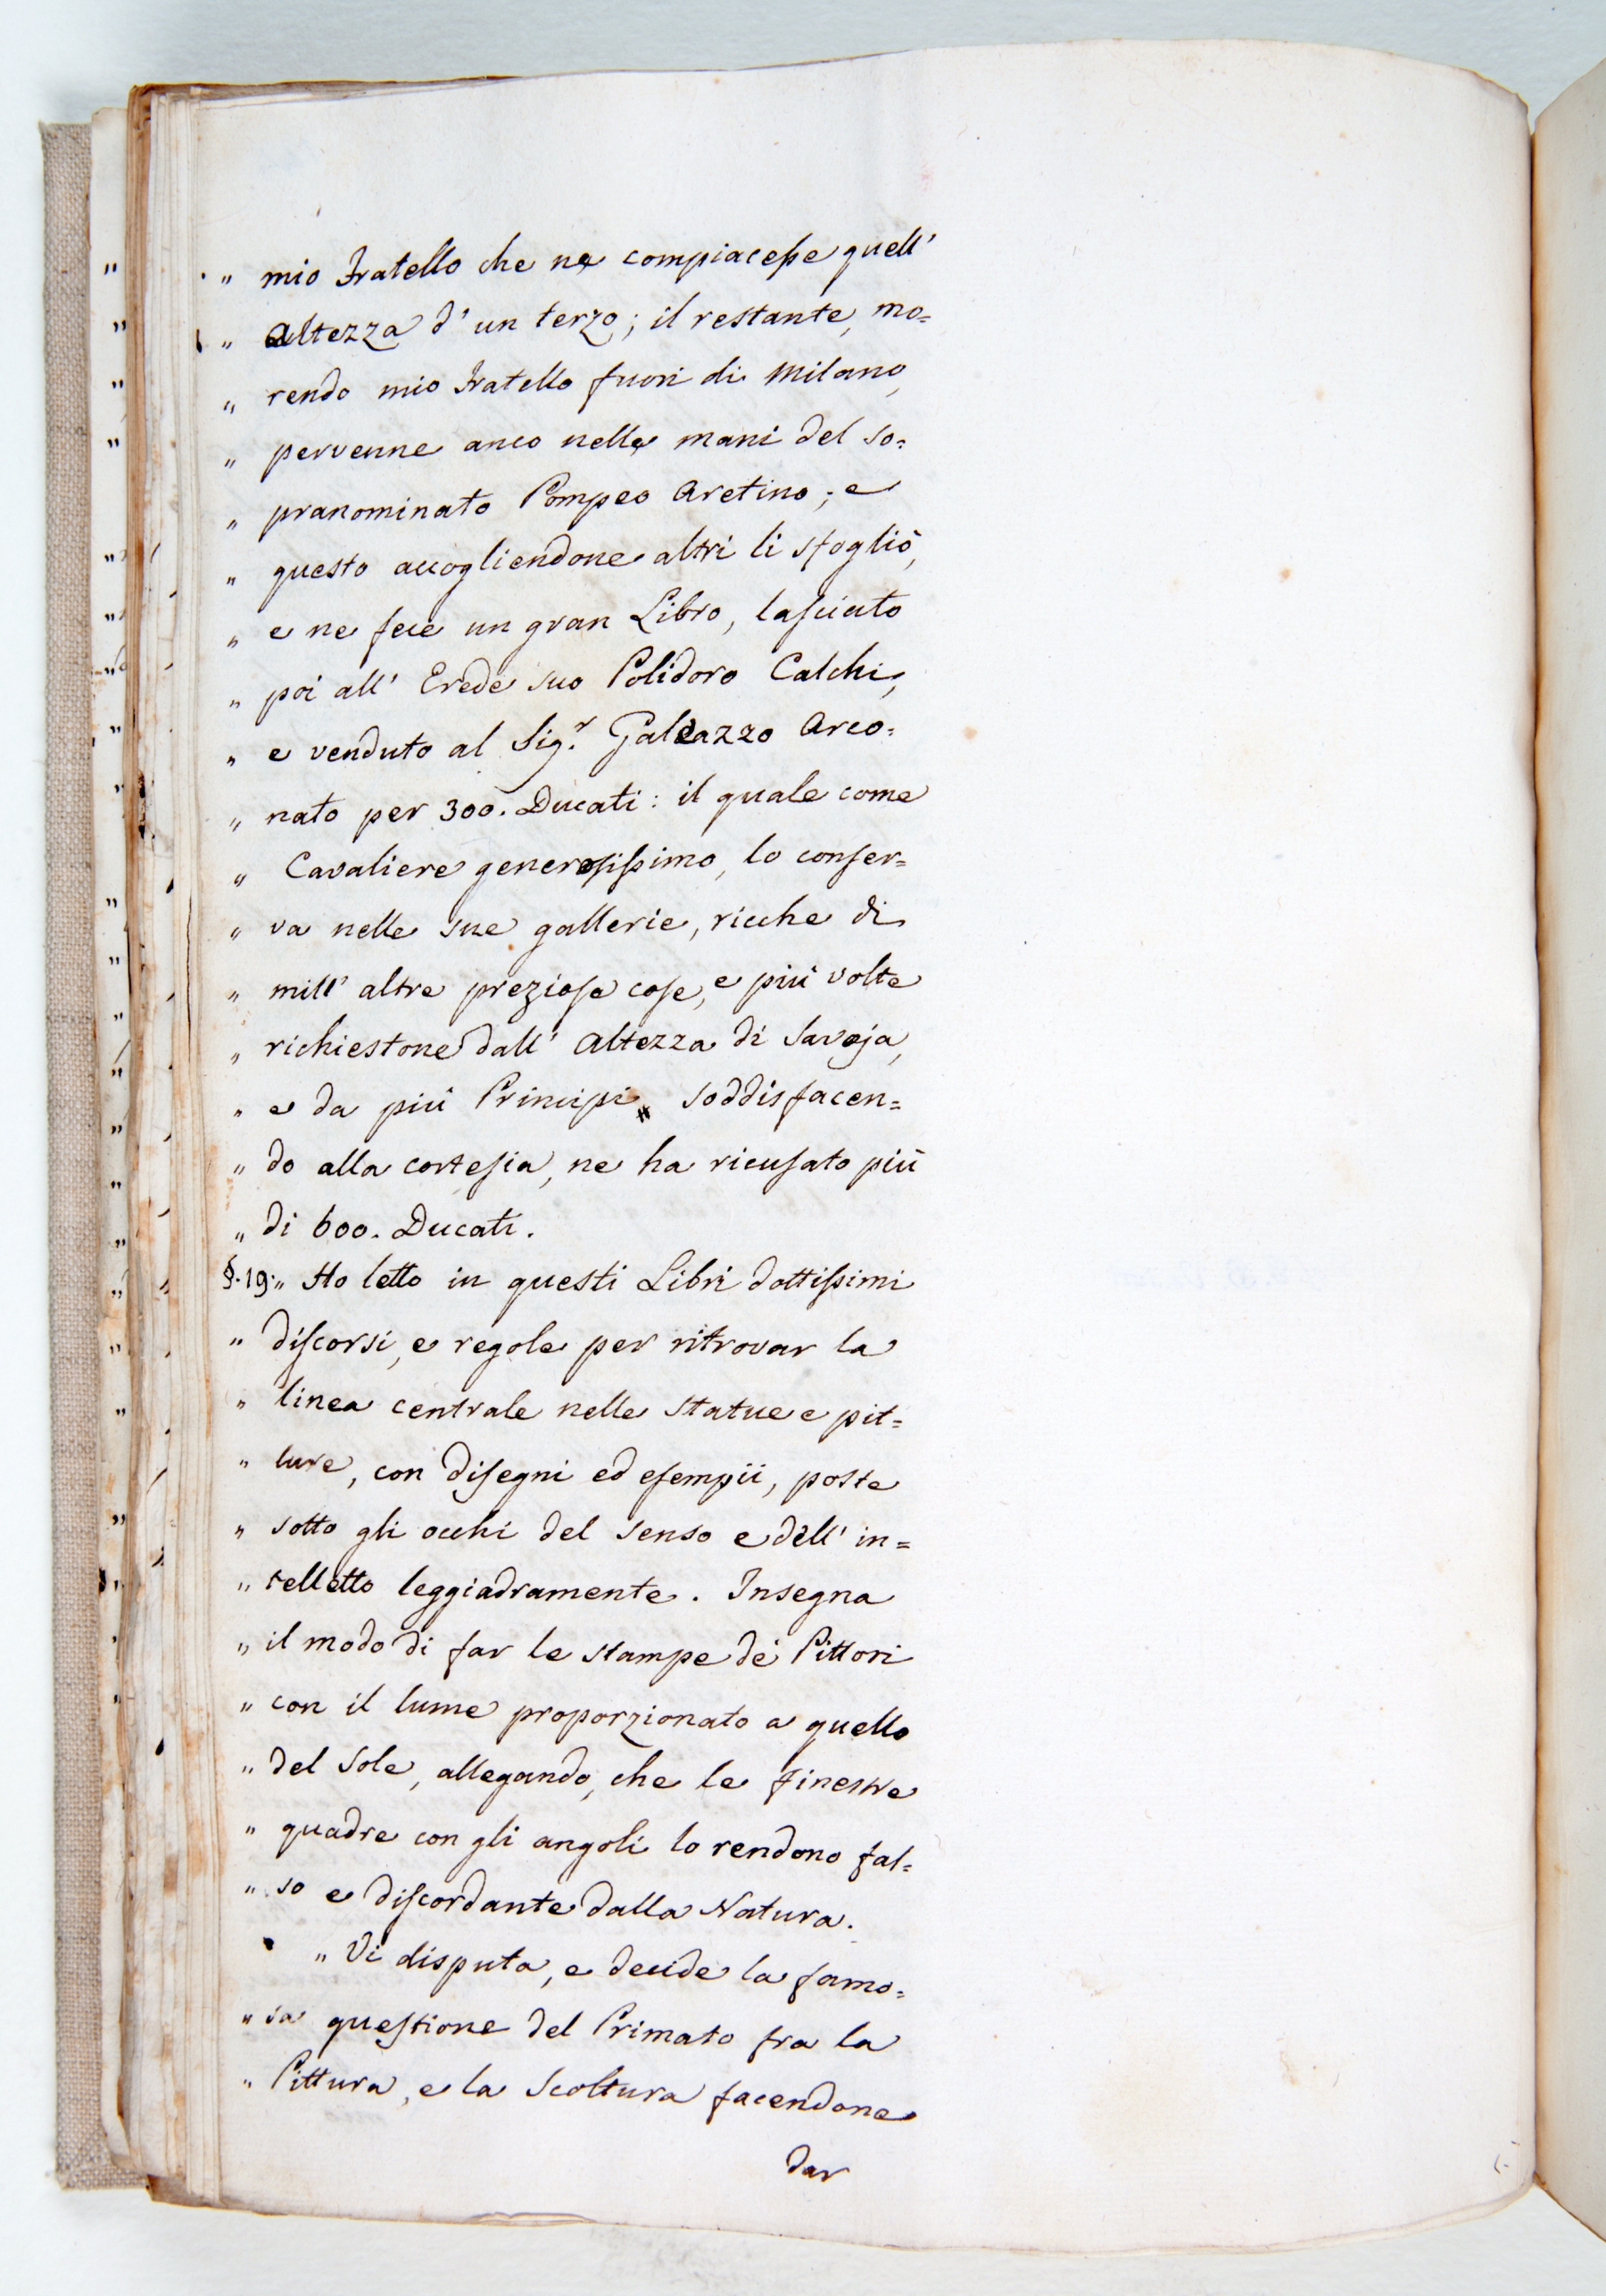 „ mio Fratello che ne compiacesse quell'
„ Altezza d' un terzo; il restante, mo=
„ rendo mio Fratello fuori di Milano,
„ pervenne anco nelle mani del so=
„ pranominato Pompeo Aretino; e
„ questo accogliendone altri li sfogliò,
„ e ne fece un gran Libro, lasciato
„ poi all' Erede suo Polidoro Calchi,
„ e venduto al Sig.r Galeazzo Arco=
„ nato per 300. Ducati: il quale come
„ Cavaliere generosissimo, lo conser=
„ va nelle sue gallerie, ricche di
„ mill' altre preziose cose, e più volte
„ richiestone dall' Altezza di Savoja,
„ e da più Principi, soddisfacen=
„ do alla cortesia, ne ha ricusato più
„ di 600. Ducati.
§.19. „ Ho letto in questi Libri dottissimi
„ discorsi, e regole per ritrovar la
„ linea centrale nelle statue e pit=
„ ture, con disegni ed esempii, poste
„ sotto gli occhi del senso e dell' in=
„ telletto leggiadramente. Insegna
„ il modo di far le stampe de' Pittori
„ con il lume proporzionato a quello
„ del Sole, allegando, che le finestre
„ quadre con gli angoli lo rendono fal=
„ so e discordante dalla Natura.
„ Vi disputa, e decide la famo=
„ sa questione del Primato fra la
„ Pittura, e la Scoltura facendone
dar